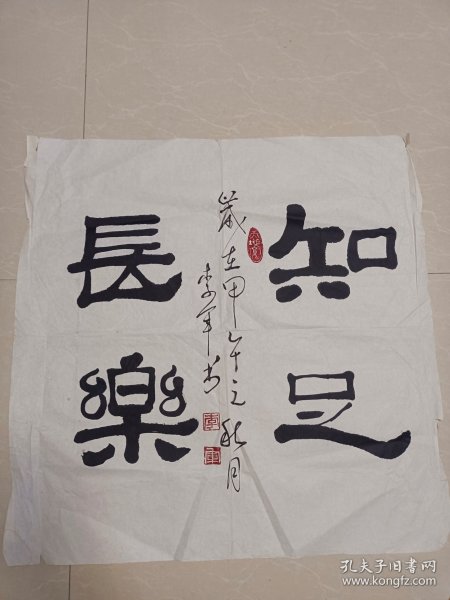 知足
長樂
歲在甲午之秋月
李军书
孔夫子旧书网
www.kongfz.com